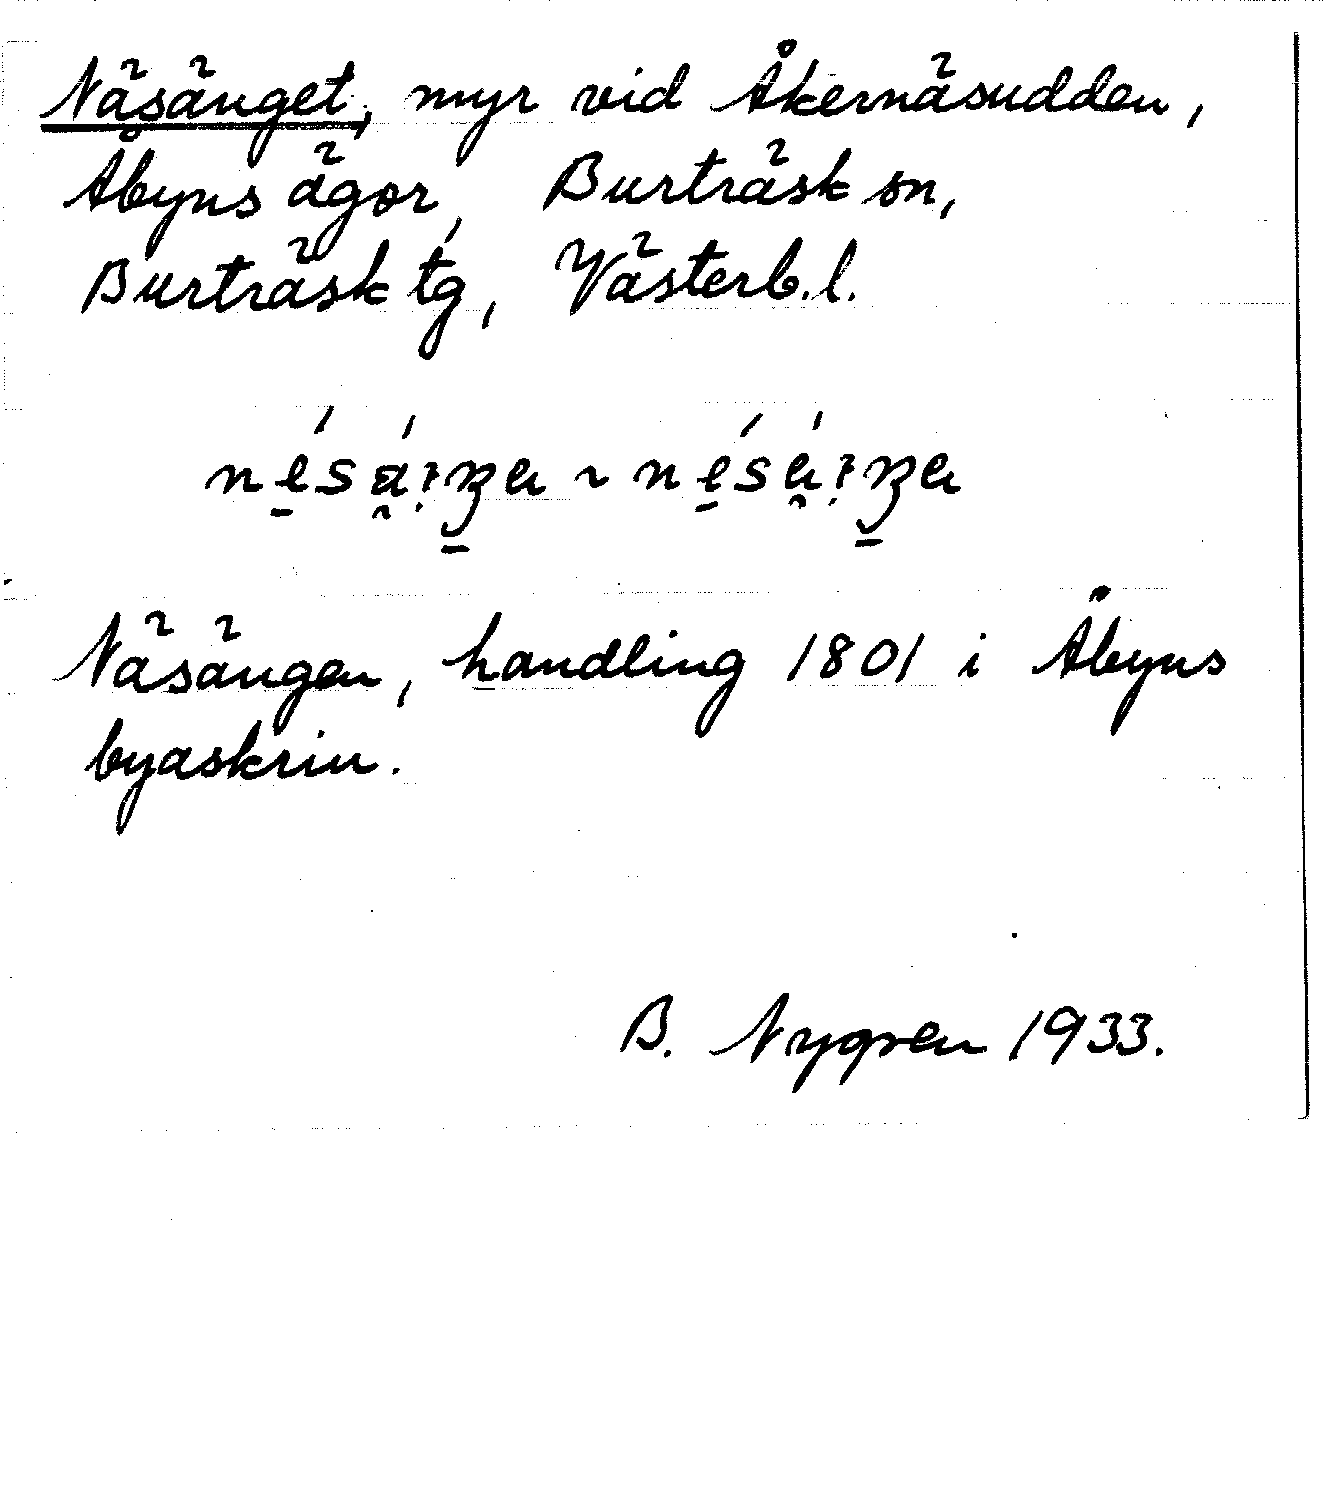 Näsänget, myr vid Åkernäsudden,
Åbyns ägor, Burträsk sn,
Burträsk tg, Västerb. l.
Näsängen, handling 1801 i Åbyns
byaskrin.
B. Nygren 1933.